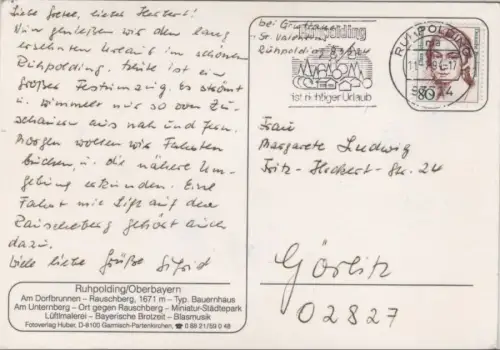 Liebe Grete, lieber Herbert!
Nun genießen wir den lang
ersehnten Urlaub im schönen
Ruhpolding. Heute ist ein
großer Festumzug. Es strömt
u. wimmelt nur so von Zu-
schauern aus nah und fern.
Morgen wollen wir Fahrten
buchen, u. die nähere Um-
gebung erkunden. Eine
Fahrt mit Lift auf den
Rauschberg gehört auch
dazu.
Viele liebe Grüße
Ruhpolding/Oberbayern
Am Dorfbrunnen – Rauschberg, 1671 m – Typ. Bauernhaus
Am Unternberg – Ort gegen Rauschberg – Miniatur-Städtepark
Lüftlmalerei – Bayerische Brotzeit – Blasmusik
Fotoverlag Huber, D-8100 Garmisch-Partenkirchen, ☎ 0 88 21/59 0 48
bei
Ruhpolding 83324
Ruhpolding
ist richtiger Urlaub
RUHPOLDING
83324
80
Frau
Margarete Ludwig
Fritz-Heckert-Str. 24
Görlitz
02827